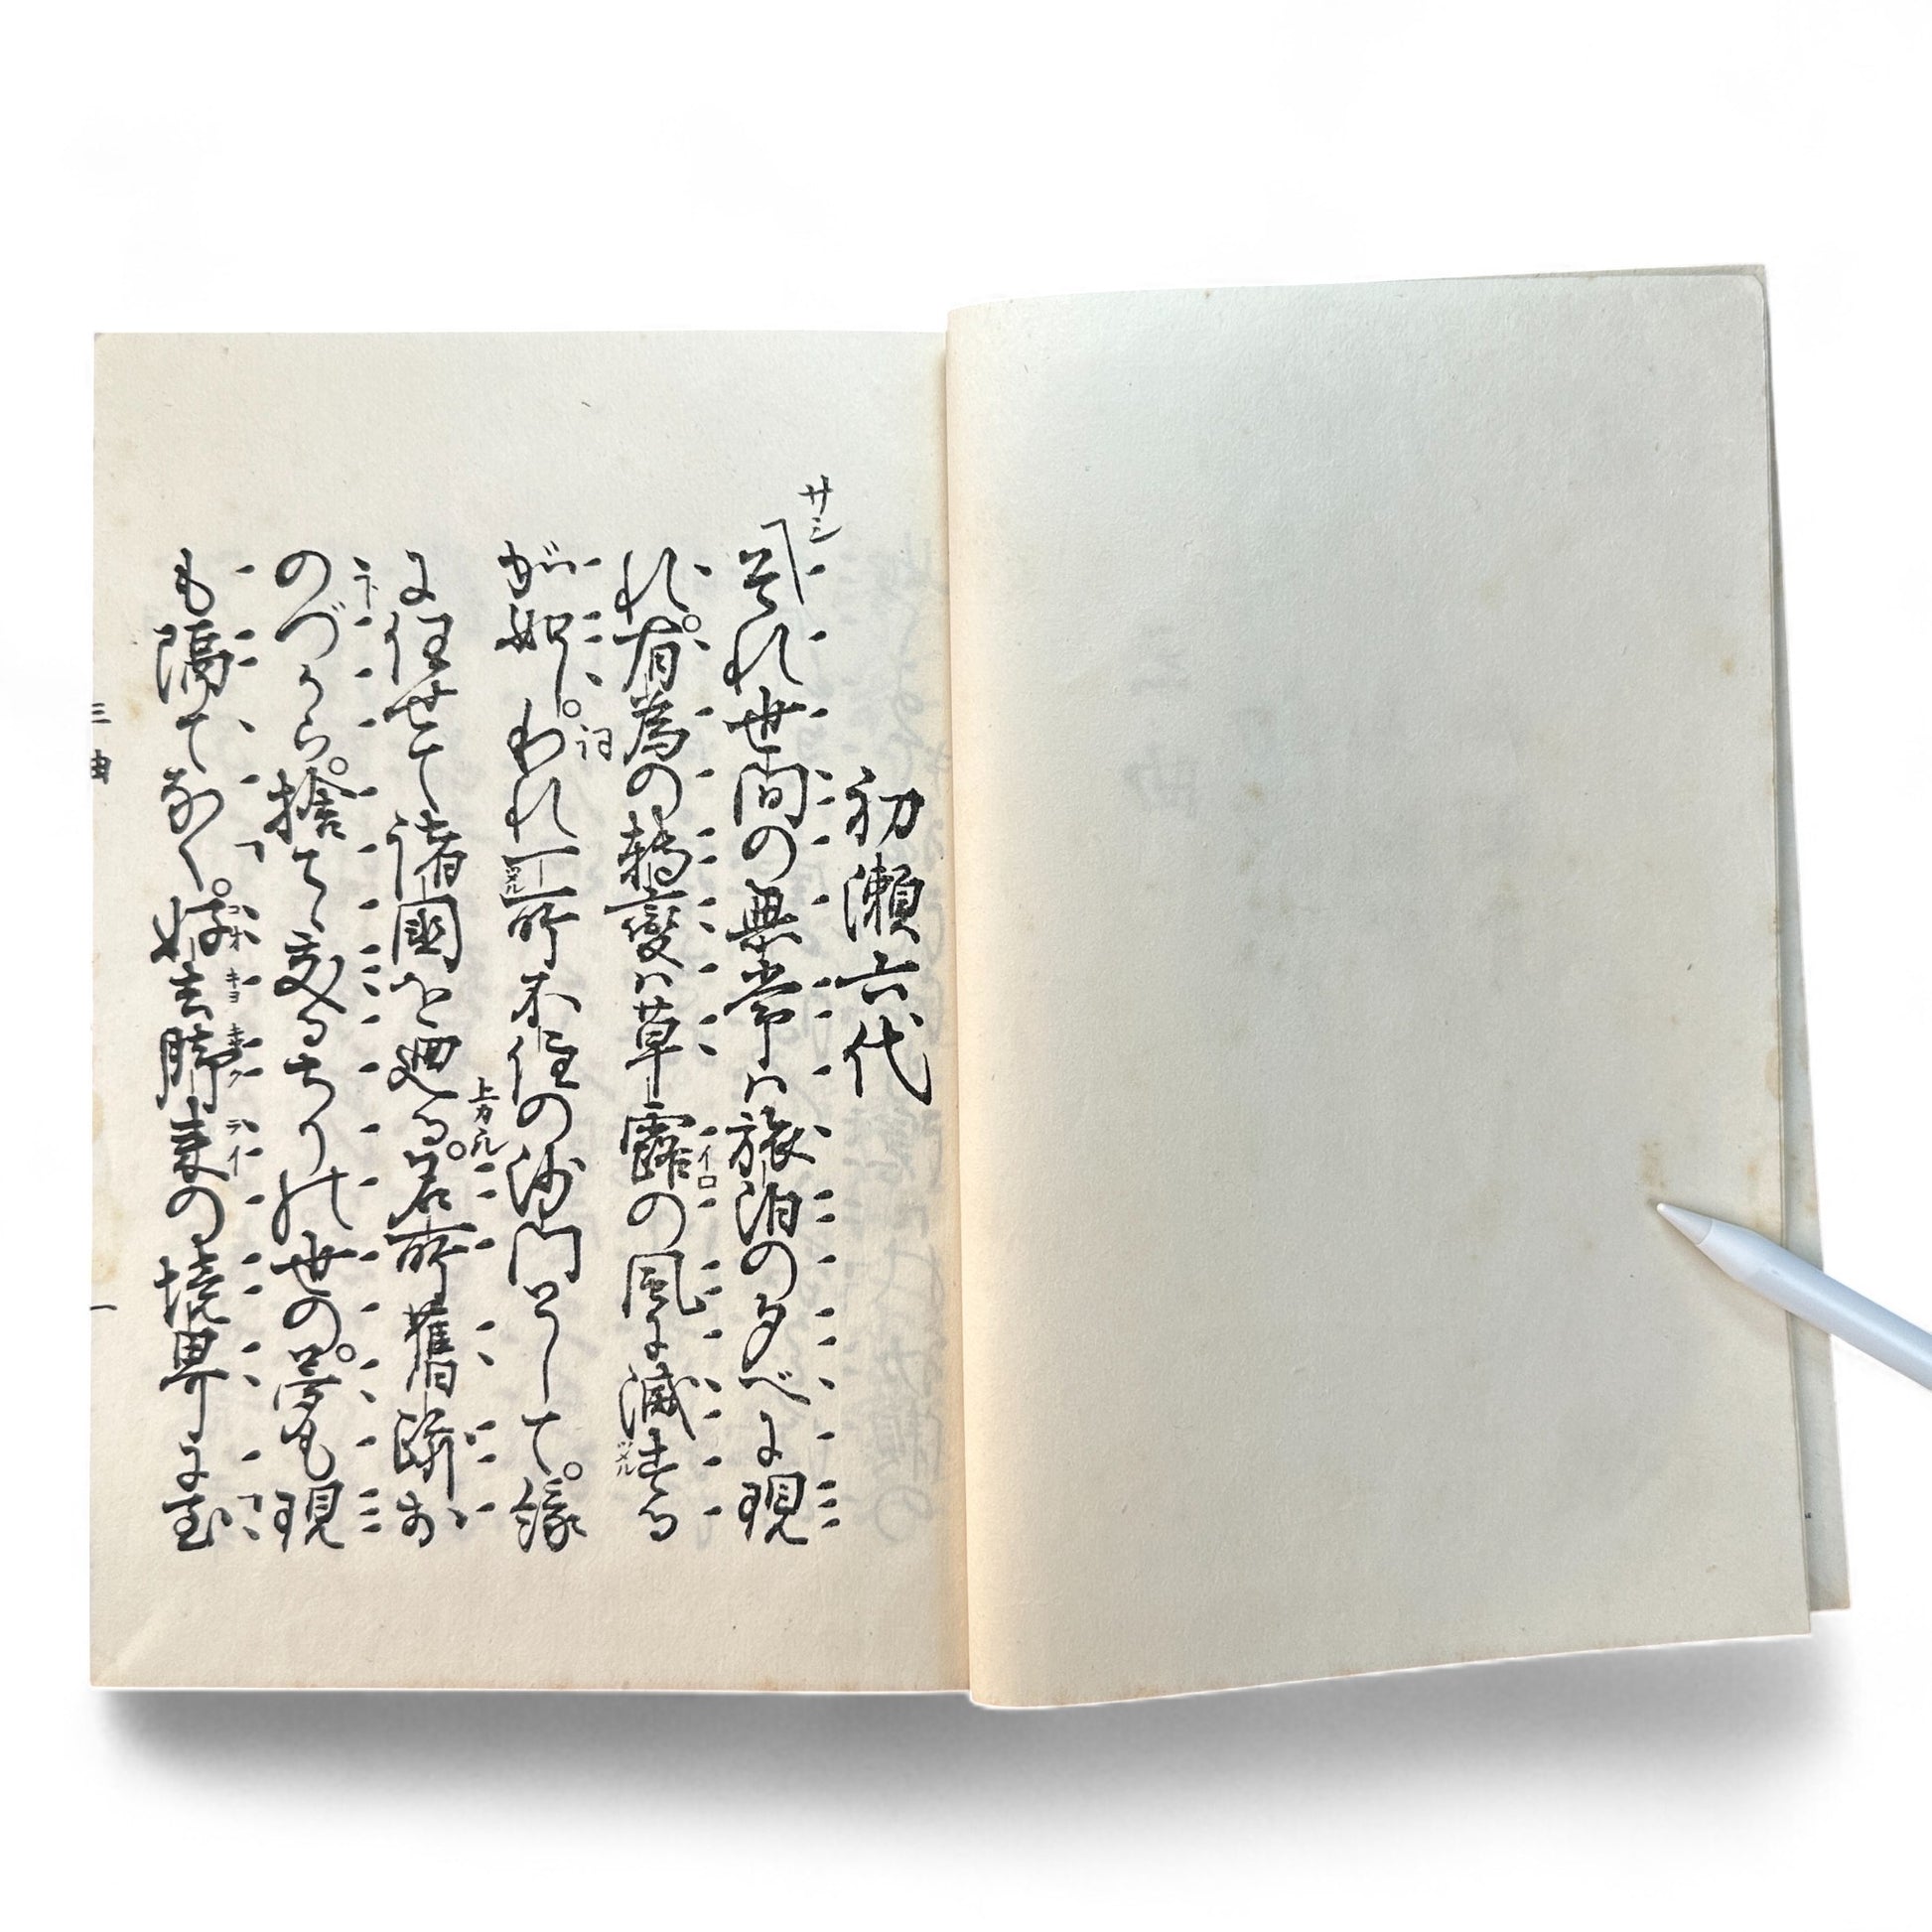 初瀬六代
サシ
それ世間の無常は旅泊の夕べに現
れ。有為の轉變は草露の風に滅する
イロ
が如し。われ一所不住の沙門として。緣
詞
に任せて諸國を廻る。名所舊跡お
上カル
のづから。捨てゝ交るちりの世の。夢も現
も隔てなく。去歸来の境界に至
キヨ
ライ
三曲
一